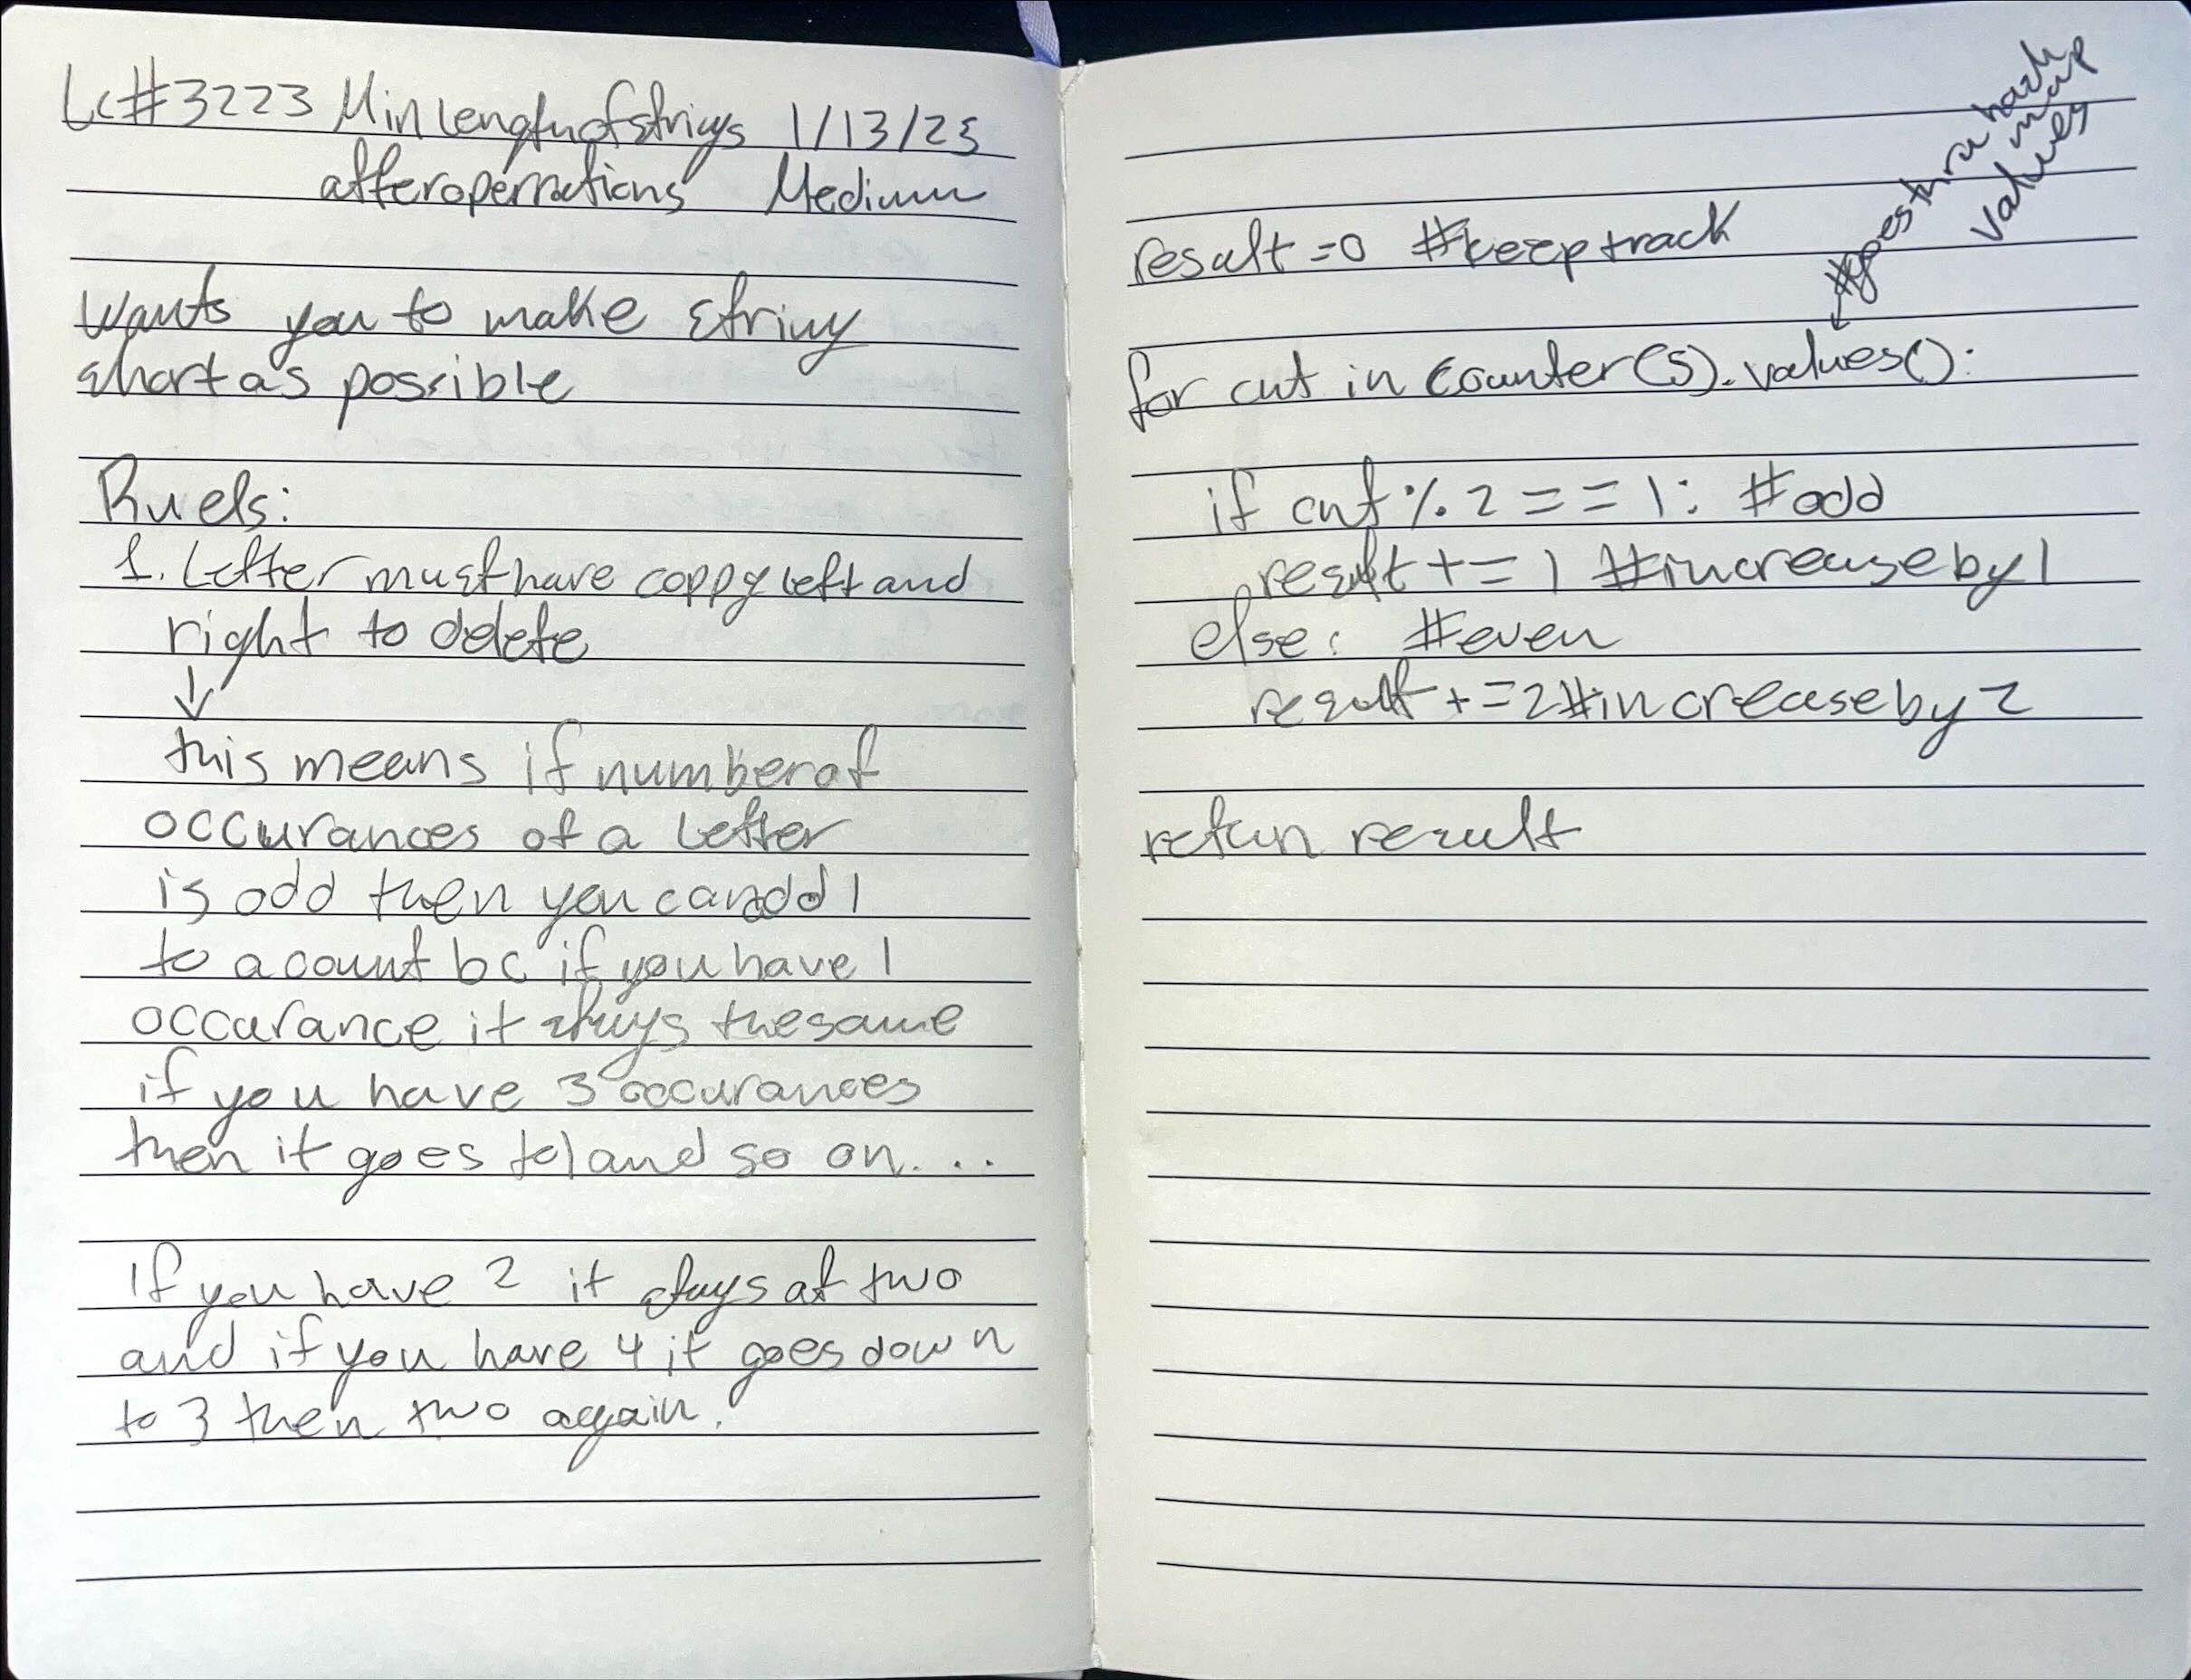 Lc#3223 Min Length of strings 1/13/25
after operrations Medium
wants you to make string
short as possible
Ruels:
1. Letter must have coppy left and
right to delete
↓
this means if number of
occurances of a letter
is odd then you can add 1
to a count bc if you have 1
occurance it stays the same
if you have 3 occurances
then it goes to 1 and so on....
If you have 2 it stays at two
and if you have 4 it goes down
to 3 then two again.
#goes thru hash
map
values
result = 0 #keep track
for cnt in Counter(s).values():
if cnt % 2 == 1: #odd
result += 1 #increase by 1
else: #even
result += 2 #increase by 2
return result